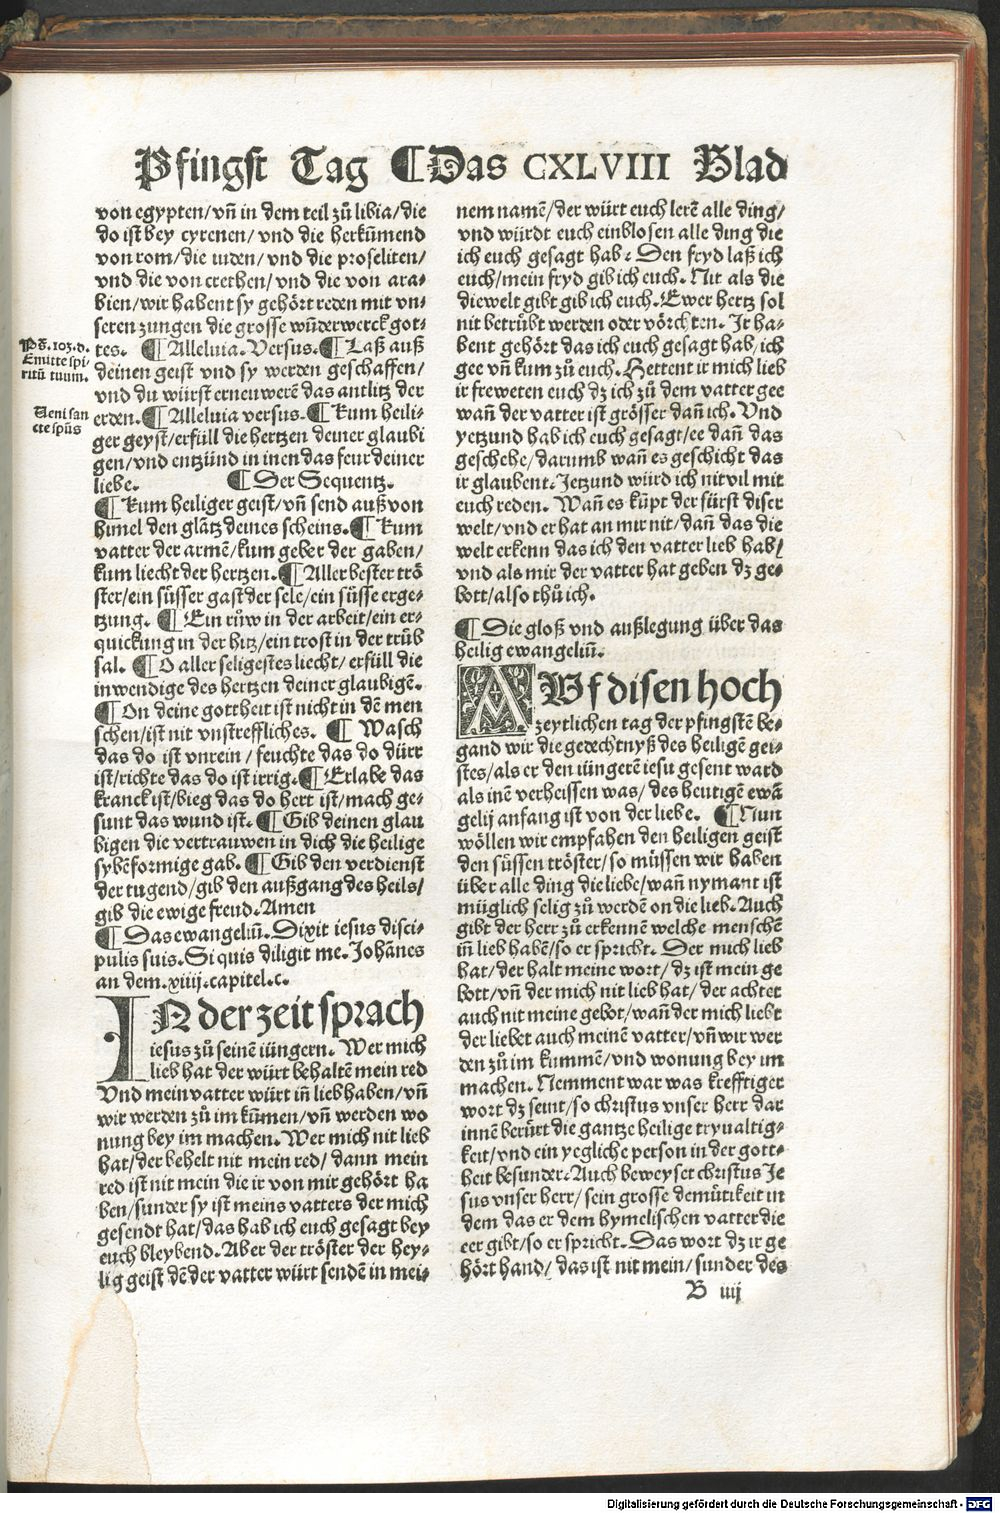 Pfingst Tag ¶Das CXLVIII Blad
von egypten/vñ in dem teil zů libia/die
do ist bey cyrenen/vnd die herkũmend
von rom/die iuden/vnd die proseliten/
vnd die von crethen/vnd die von ara-
bien/wir habent sy gehört reden mit vn-
seren zungen die grosse wũderwerck got-
tes. ¶Alleluia.Versus.¶Laß auß
deinen geist vnd sy werden geschaffen/
vnd du würst erneuwerē das antlitz der
erden.¶Alleluia versus.¶Kum heili-
ger geyst/erfüll die hertzen deiner glaubi
gen/vnd entzünd in inen das feur deiner
liebe. ¶Der Sequentz.
¶Kum heiliger geist/vñ send auß von
himel den glātz deines scheins.¶Kum
vatter der armē/kum geber der gaben/
kum liecht der hertzen.¶Aller bester trö
ster/ein süsser gast der sele/ein süsse erge-
tzung. ¶Ein růw in der arbeit/ein er-
quickung in der hitz/ein trost in der trüb
sal. ¶O aller seligestes liecht/erfüll die
inwendige des hertzen deiner glaubigē.
¶On deine gottheit ist nicht in dē men
schen/ist nit vnstreffliches. ¶Wasch
das do ist vnrein/feuchte das do dürr
ist/richte das do ist irrig.¶Erlabe das
kranck ist/bieg das do hert ist/mach ge-
sunt das wund ist.¶Gib deinen glau
bigen die vertrauwen in dich die heilige
sybēformige gab.¶Gib den verdienst
der tugend/gib den außgang des heils/
gib die ewige freud.Amen
¶Das ewangeliũ.Dixit iesus disci-
pulis suis.Si quis diligit me.Johānes
an dem.xiiij.capitel.c.
IN der zeit sprach
iesus zů seinē iüngern. Wer mich
lieb hat der würt behaltē mein red
Vnd mein vatter würt in̄ lieb haben/vñ
wir werden zů im kũmen/vñ werden wo
nung bey im machen.Wer mich nit lieb
hat/der behelt nit mein red/dann mein
red ist nit mein die ir von mir gehört ha
ben/sunder sy ist meins vatters der mich
gesendt hat/das hab ich euch gesagt bey
euch bleybend.Aber der tröster der hey-
lig geist dē der vatter würt sendē in mei-
Ps. 103.d.
Emitte spi-
ritũ tuum.
Veni san
cte spũs
nem namē/der würt euch lerē alle ding/
vnd würdt euch einblosen alle ding die
ich euch gesagt hab. Den fryd laß ich
euch/mein fryd gib ich euch.Nit als die
die welt gibt gib ich euch.Ewer hertz sol
nit betrübt werden oder vörchten. Ir ha-
bent gehört das ich euch gesagt hab/ich
gee vñ kum zů euch.Hettent ir mich lieb
ir freweten euch dz ich zů dem vatter gee
wañ der vatter ist grösser dañ ich.Vnd
yetzund hab ich euch gesagt/ee dañ das
geschehe/darumb wañ es geschicht das
ir glaubent.Jetzund würd ich nit vil mit
euch reden. Wañ es kũpt der fürst diser
welt/vnd er hat an mir nit/dañ das die
welt erkenn das ich den vatter lieb hab/
vnd als mir der vatter hat geben dz ge-
bott/also thů ich.
¶Die gloß vnd außlegung über das
heilig ewangeliũ.
AVf disen hoch
zeytlichen tag der pfingstē be-
gand wir die gedechtnyß des heiligē gei-
stes/als er den iüngerē iesu gesent ward
als inē verheissen was/des heutigē ewā
gelij anfang ist von der liebe. ¶Nun
wöllen wir empfahen den heiligen geist
den süssen tröster/so müssen wir haben
über alle ding die liebe/wañ nymant ist
müglich selig zů werdē on die lieb.Auch
gibt der herr zů erkennē welche menschē
in̄ lieb habē/so er spricht. Der mich lieb
hat/der halt meine wort/dz ist mein ge
bott/vñ der mich nit lieb hat/der achtet
auch nit meine gebot/wañ der mich liebt
der liebet auch meinē vatter/vñ wir wer
den zů im kummē/vnd wonung bey im
machen. Nemment war was krefftiger
wort dz seint/so christus vnser herr dar
innē berürt die gantze heilige tryualtig-
keit/vnd ein yegliche person in der gott-
heit besunder.Auch beweyset christus Je
sus vnser herr/sein grosse demütikeit in
dem das er dem hymelischen vatter die
eer gibt/so er spricht.Das wort dz ir ge
hört hand/das ist nit mein/sunder des
B iiij
Digitalisierung gefördert durch die Deutsche Forschungsgemeinschaft - DFG